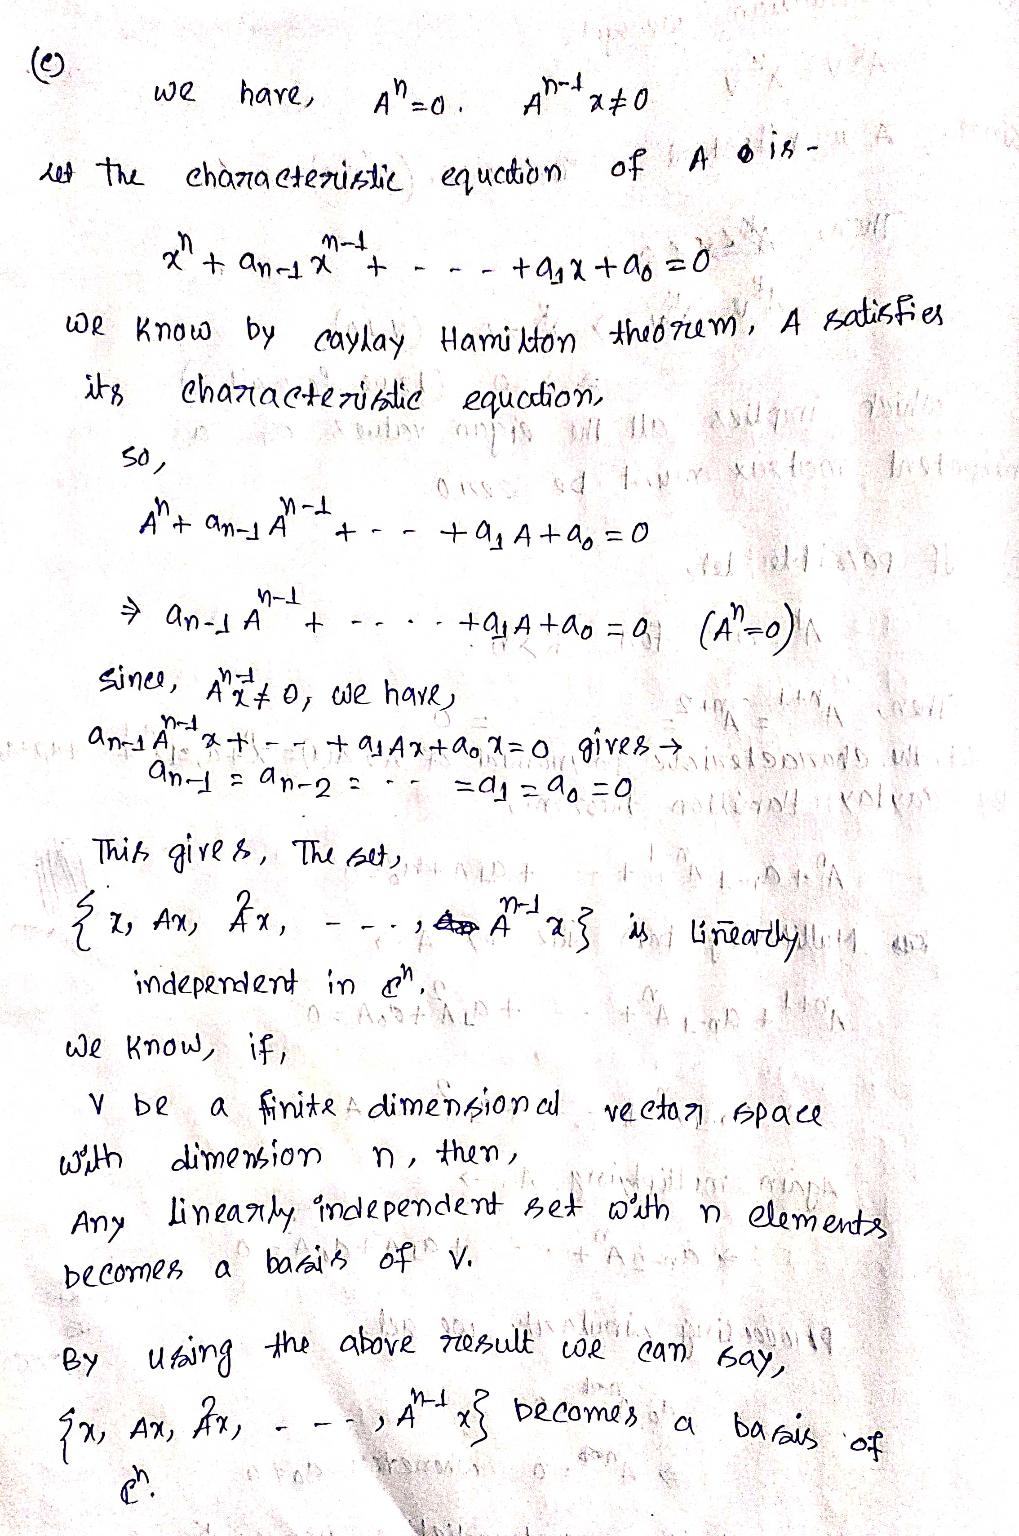 (c)
we have, Aⁿ=0. Aⁿ⁻¹x≠0
Let the characteristic equation of A is -
xⁿ + aₙ₋₁xⁿ⁻¹ + - - - + a₁x + a₀ = 0
we know by caylay Hamilton theorem, A satisfies
its characteristic equation,
so,
Aⁿ + aₙ₋₁Aⁿ⁻¹ + - - + a₁A + a₀ = 0
⇒ aₙ₋₁Aⁿ⁻¹ + - - . . + a₁A + a₀ = 0, (Aⁿ=0)
since, Aⁿ⁻¹x ≠ 0, we have,
aₙ₋₁Aⁿ⁻¹x + - - + a₁Ax + a₀x = 0 gives →
aₙ₋₁ = aₙ₋₂ = - - = a₁ = a₀ = 0
This gives, The set,
{x, Ax, A²x, - - - , Aⁿ⁻¹x} is linearly
independent in ℂⁿ.
we know, if,
V be a finite dimensional vector space
with dimension n, then,
Any linearly independent set with n elements
becomes a basis of V.
By using the above result we can say,
{x, Ax, A²x, - - - , Aⁿ⁻¹x} becomes a basis of
ℂⁿ.